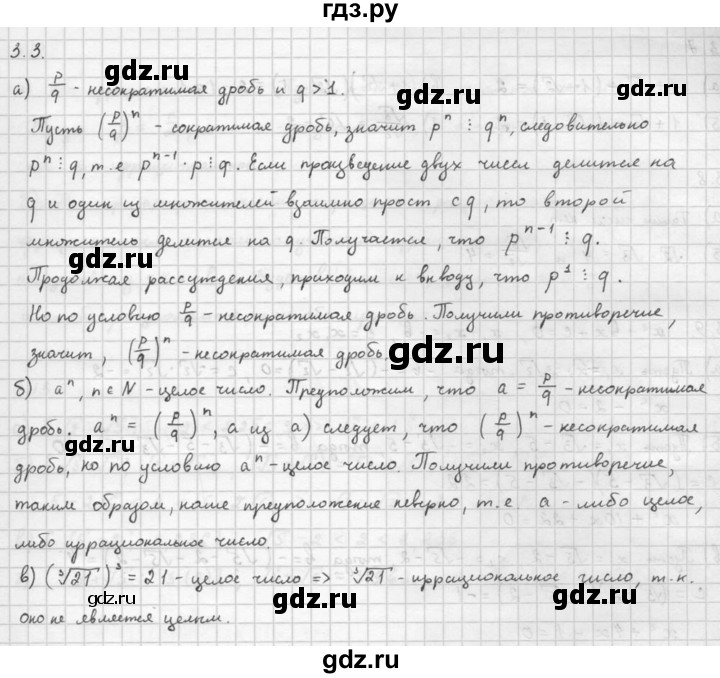 гдз.ру
3.3.
gdz.ru
gdz.ru
а) p/q - несократимая дробь и q > 1.
gdz.ru
Пусть (p/q)^n - сократимая дробь, значит p^n ⋮ q^n, следовательно
p^n ⋮ q, т.е p^(n-1) · p ⋮ q. Если произведение двух чисел делится на
q и один из множителей взаимно прост с q, то второй
gdz.ru
gdz.ru
множитель делится на q. Получается, что p^(n-1) ⋮ q.
Продолжая рассуждения, приходим к выводу, что p^1 ⋮ q.
Но по условию p/q - несократимая дробь. Получили противоречие,
значит, (p/q)^n - несократимая дробь.
gdz.ru
б) a^n, n ∈ N - целое число. Предположим, что a = p/q - несократимая
дробь. a^n = (p/q)^n, а из а) следует, что (p/q)^n - несократимая
gdz.ru
gdz.ru
дробь, но по условию a^n - целое число. Получили противоречие,
таким образом, наше предположение неверно, т.е. a - либо целое,
либо иррациональное число.
gdz.ru
в) (∛21)^3 = 21 - целое число => ∛21 - иррациональное число, т.к.
gdz.ru
gdz.ru
оно не является целым.
gdz.ru
gdz.ru